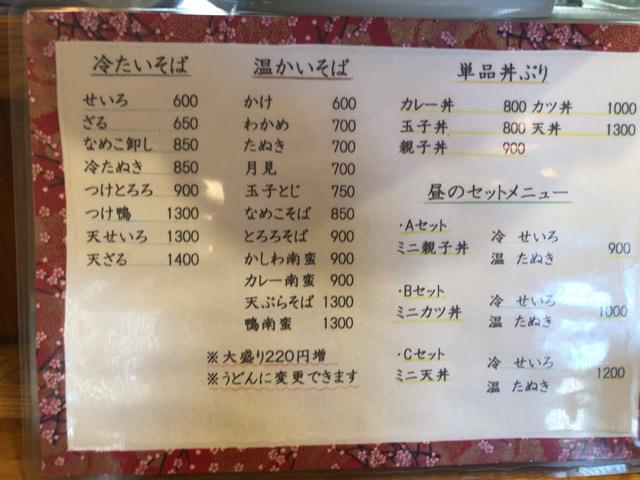 冷たいそば
せいろ 600
ざる 650
なめこ卸し 850
冷たぬき 850
つけとろろ 900
つけ鴨 1300
天せいろ 1300
天ざる 1400
温かいそば
かけ 600
わかめ 700
たぬき 700
月見 700
玉子とじ 750
なめこそば 850
とろろそば 900
かしわ南蛮 900
カレー南蛮 900
天ぷらそば 1300
鴨南蛮 1300
※大盛り220円増
※うどんに変更できます
単品丼ぶり
カレー丼 800 カツ丼 1000
玉子丼 800 天丼 1300
親子丼 900
昼のセットメニュー
・Aセット
ミニ親子丼 冷 せいろ
温 たぬき 900
・Bセット
ミニカツ丼 冷 せいろ
温 たぬき 1000
・Cセット
ミニ天丼 冷 せいろ
温 たぬき 1200